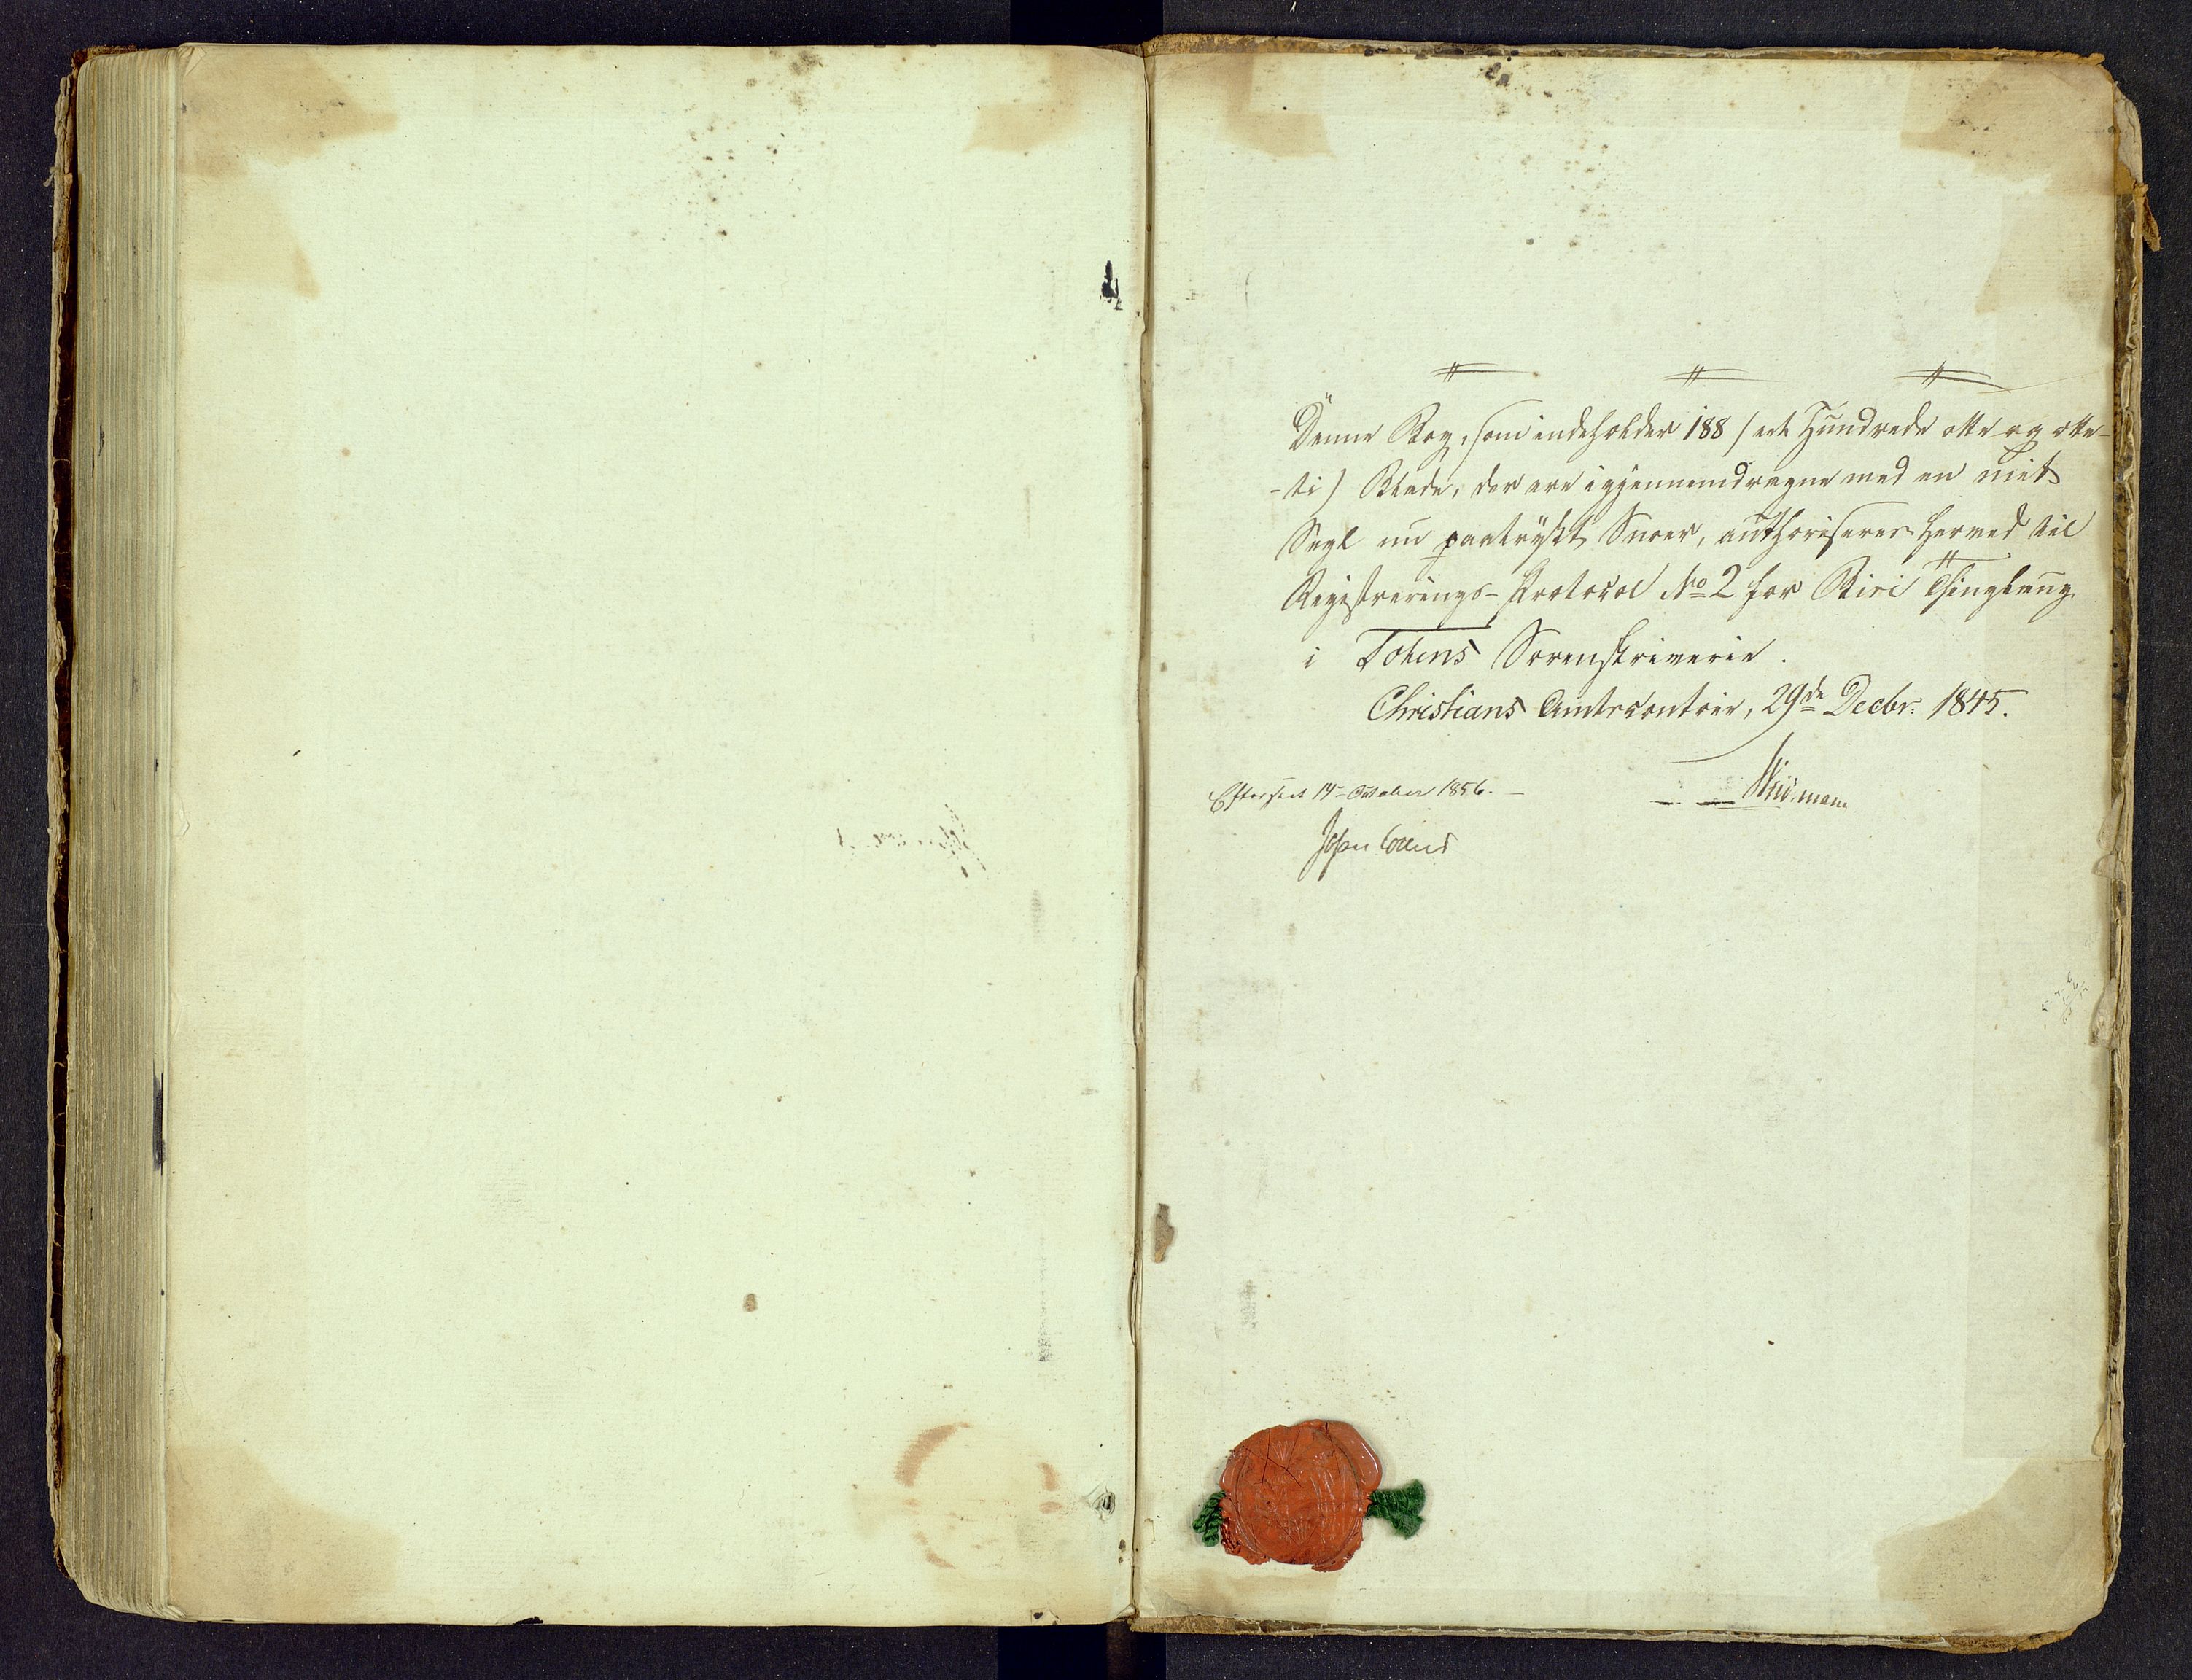 Denne Bog, som indeholder 188 / eet Hundrede otte og otte-
-ti) Blade, der ere igjennemdragne med en mit
Segl nu paatrykt Snoer, authoriseres herved til
Registrerings-Protocol No 2 for Biri Thinglaug
i Totens Sorenskriverie.
Christians Amtscontoir, 29de Decbr. 1845.
Efterseet 14 October 1856.
Weidemann
Johan Collett